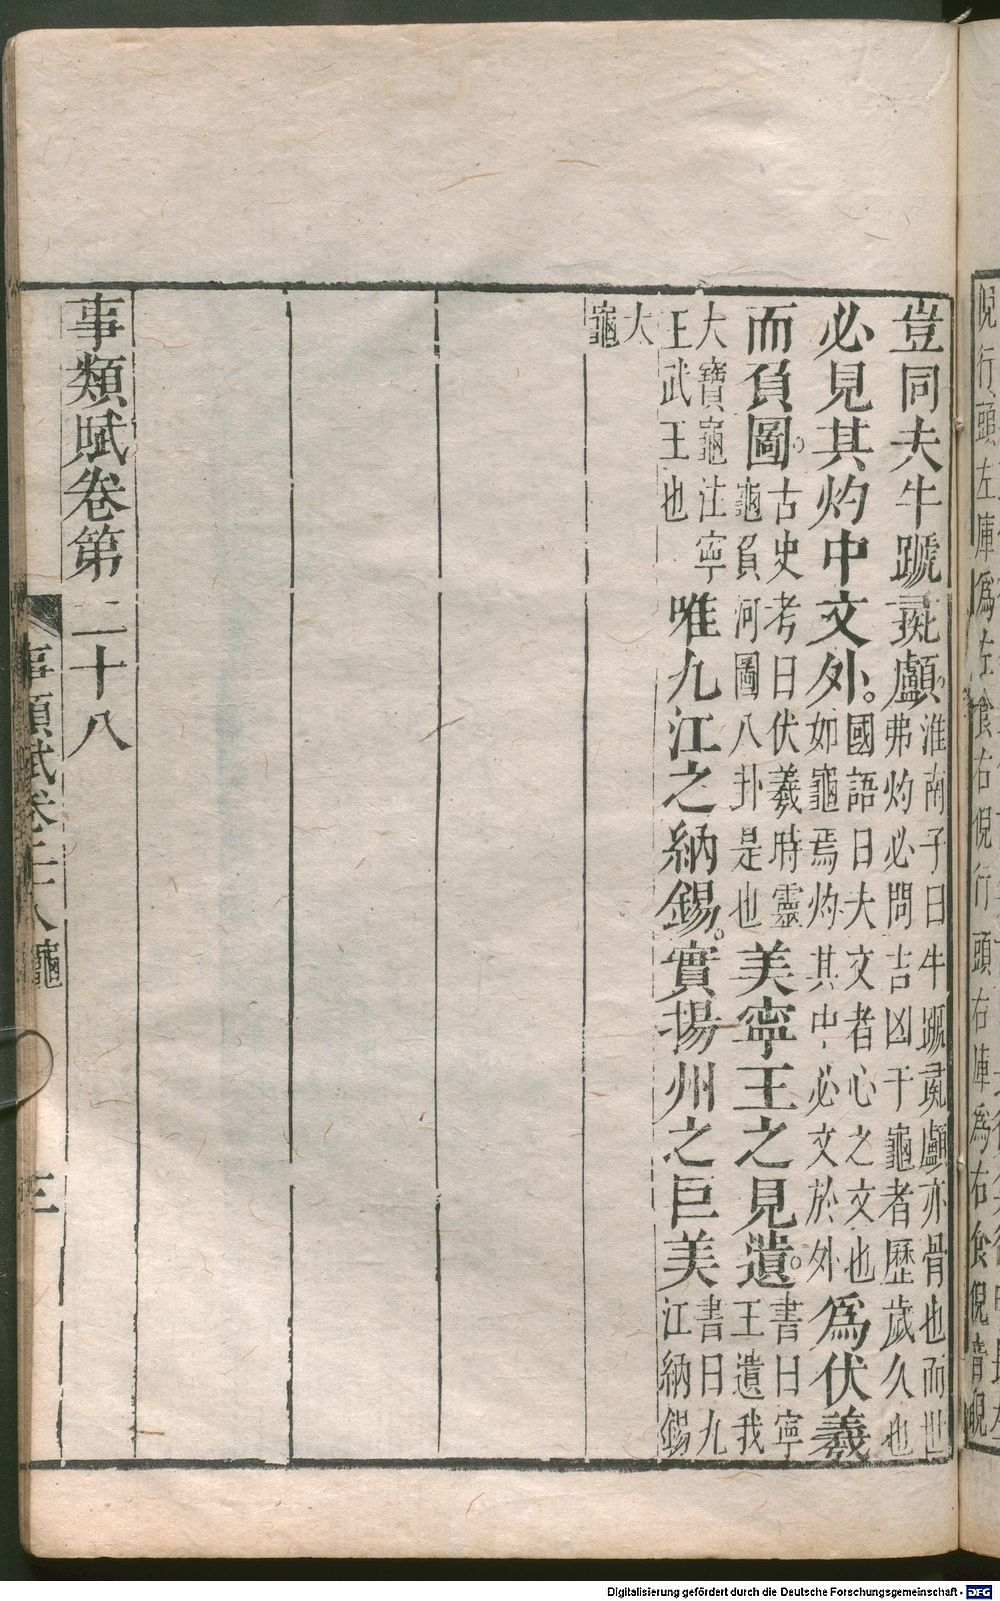 倪行頭左庳爲左食右倪行頭右庳爲右食倪音睨
豈同夫牛蹏彘顱淮南子曰牛蹏彘顱亦骨也而世弗灼必問吉凶于龜者歷歲久也
必見其灼中文外。國語曰夫文者心之文也如龜焉灼其中必文於外爲伏羲
而負圖古史考曰伏羲時靈龜負河圖八卦是也美寧王之見遺。書曰寧王遺我
大寶龜注寧王武王也唯九江之納錫。實揚州之巨美書曰九江納錫
大龜
事類賦卷第二十八
事類賦卷二十八 龜 三
Digitalisierung gefördert durch die Deutsche Forschungsgemeinschaft - DFG